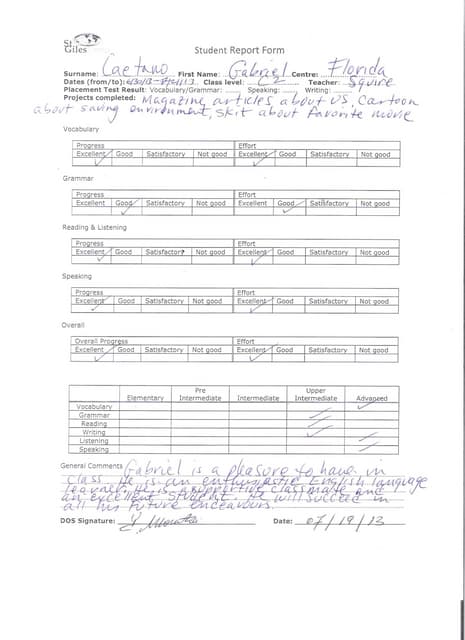 St Giles
Student Report Form
Surname: Caetano First Name: Gabriel Centre: Florida
Dates (from/to): Class level: C2 Teacher: Squire
Placement Test Result: Vocabulary/Grammar: Speaking: Writing:
Projects completed: Magazine articles about US, Cartoon
about saving environment, skit about favorite movie
Vocabulary
Progress Effort
Excellent Good Satisfactory Not good Excellent Good Satisfactory Not good
Grammar
Progress Effort
Excellent Good Satisfactory Not good Excellent Good Satisfactory Not good
Reading & Listening
Progress Effort
Excellent Good Satisfactory Not good Excellent Good Satisfactory Not good
Speaking
Progress Effort
Excellent Good Satisfactory Not good Excellent Good Satisfactory Not good
Overall
Overall Progress Effort
Excellent Good Satisfactory Not good Excellent Good Satisfactory Not good
Elementary Pre Intermediate Intermediate Upper Intermediate Advanced
Vocabulary
Grammar
Reading
Writing
Listening
Speaking
General Comments Gabriel is a pleasure to have in
class. He is an enthusiastic English language
learner. He is a supportive classmate and
an excellent student. He will succeed in
all his future endeavours.
DOS Signature: Date: 07/19/13